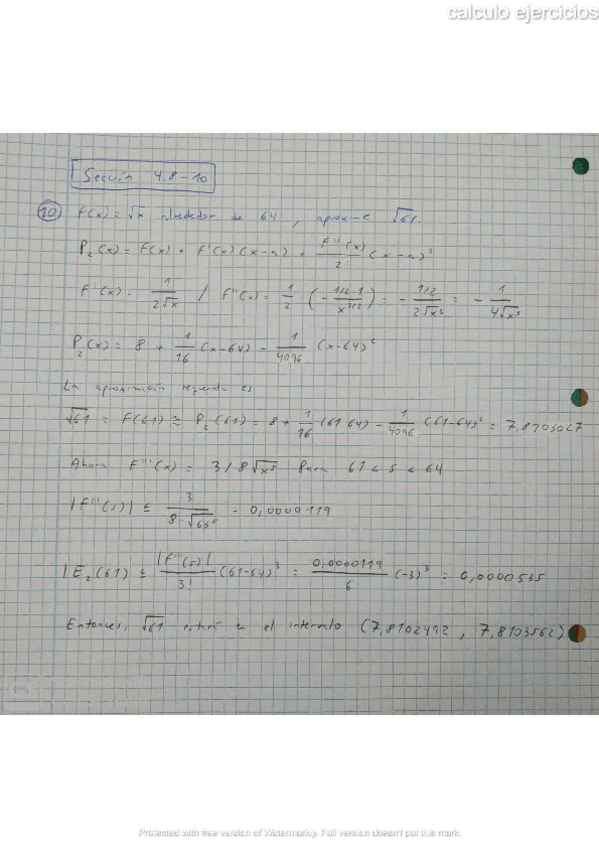 calculo ejercicios
Sección 4.8-10
10) F(x) = √x alrededor de 64, aproxime √61.
P₂(x) = F(x) + F'(x)(x-a) + F''(x)/2! (x-a)²
F'(x) = 1/(2√x) / F''(x) = 1/2 · (- 1/2·1/x^(3/2)) = - (1/2)/(2√x³) = - 1/(4√x³)
P₂(x) = 8 + 1/16 (x-64) - 1/4096 (x-64)²
La aproximación requerida es
√61 = F(61) ≅ P₂(61) = 8 + 1/16 (61-64) - 1/4096 (61-64)² = 7,8103027
Ahora F'''(x) = 3/8√x⁵ Para 61 < s < 64
|F'''(s)| ≤ 3/(8·√61⁵) = 0,0000119
|E₂(61)| ≤ |F'''(s)|/3! (61-64)³ = 0,0000119/6 (-3)³ = 0,0000535
Entonces, √61 estará en el intervalo (7,8102492, 7,8103562)
Protected with free version of Watermarkly. Full version doesn't put this mark.